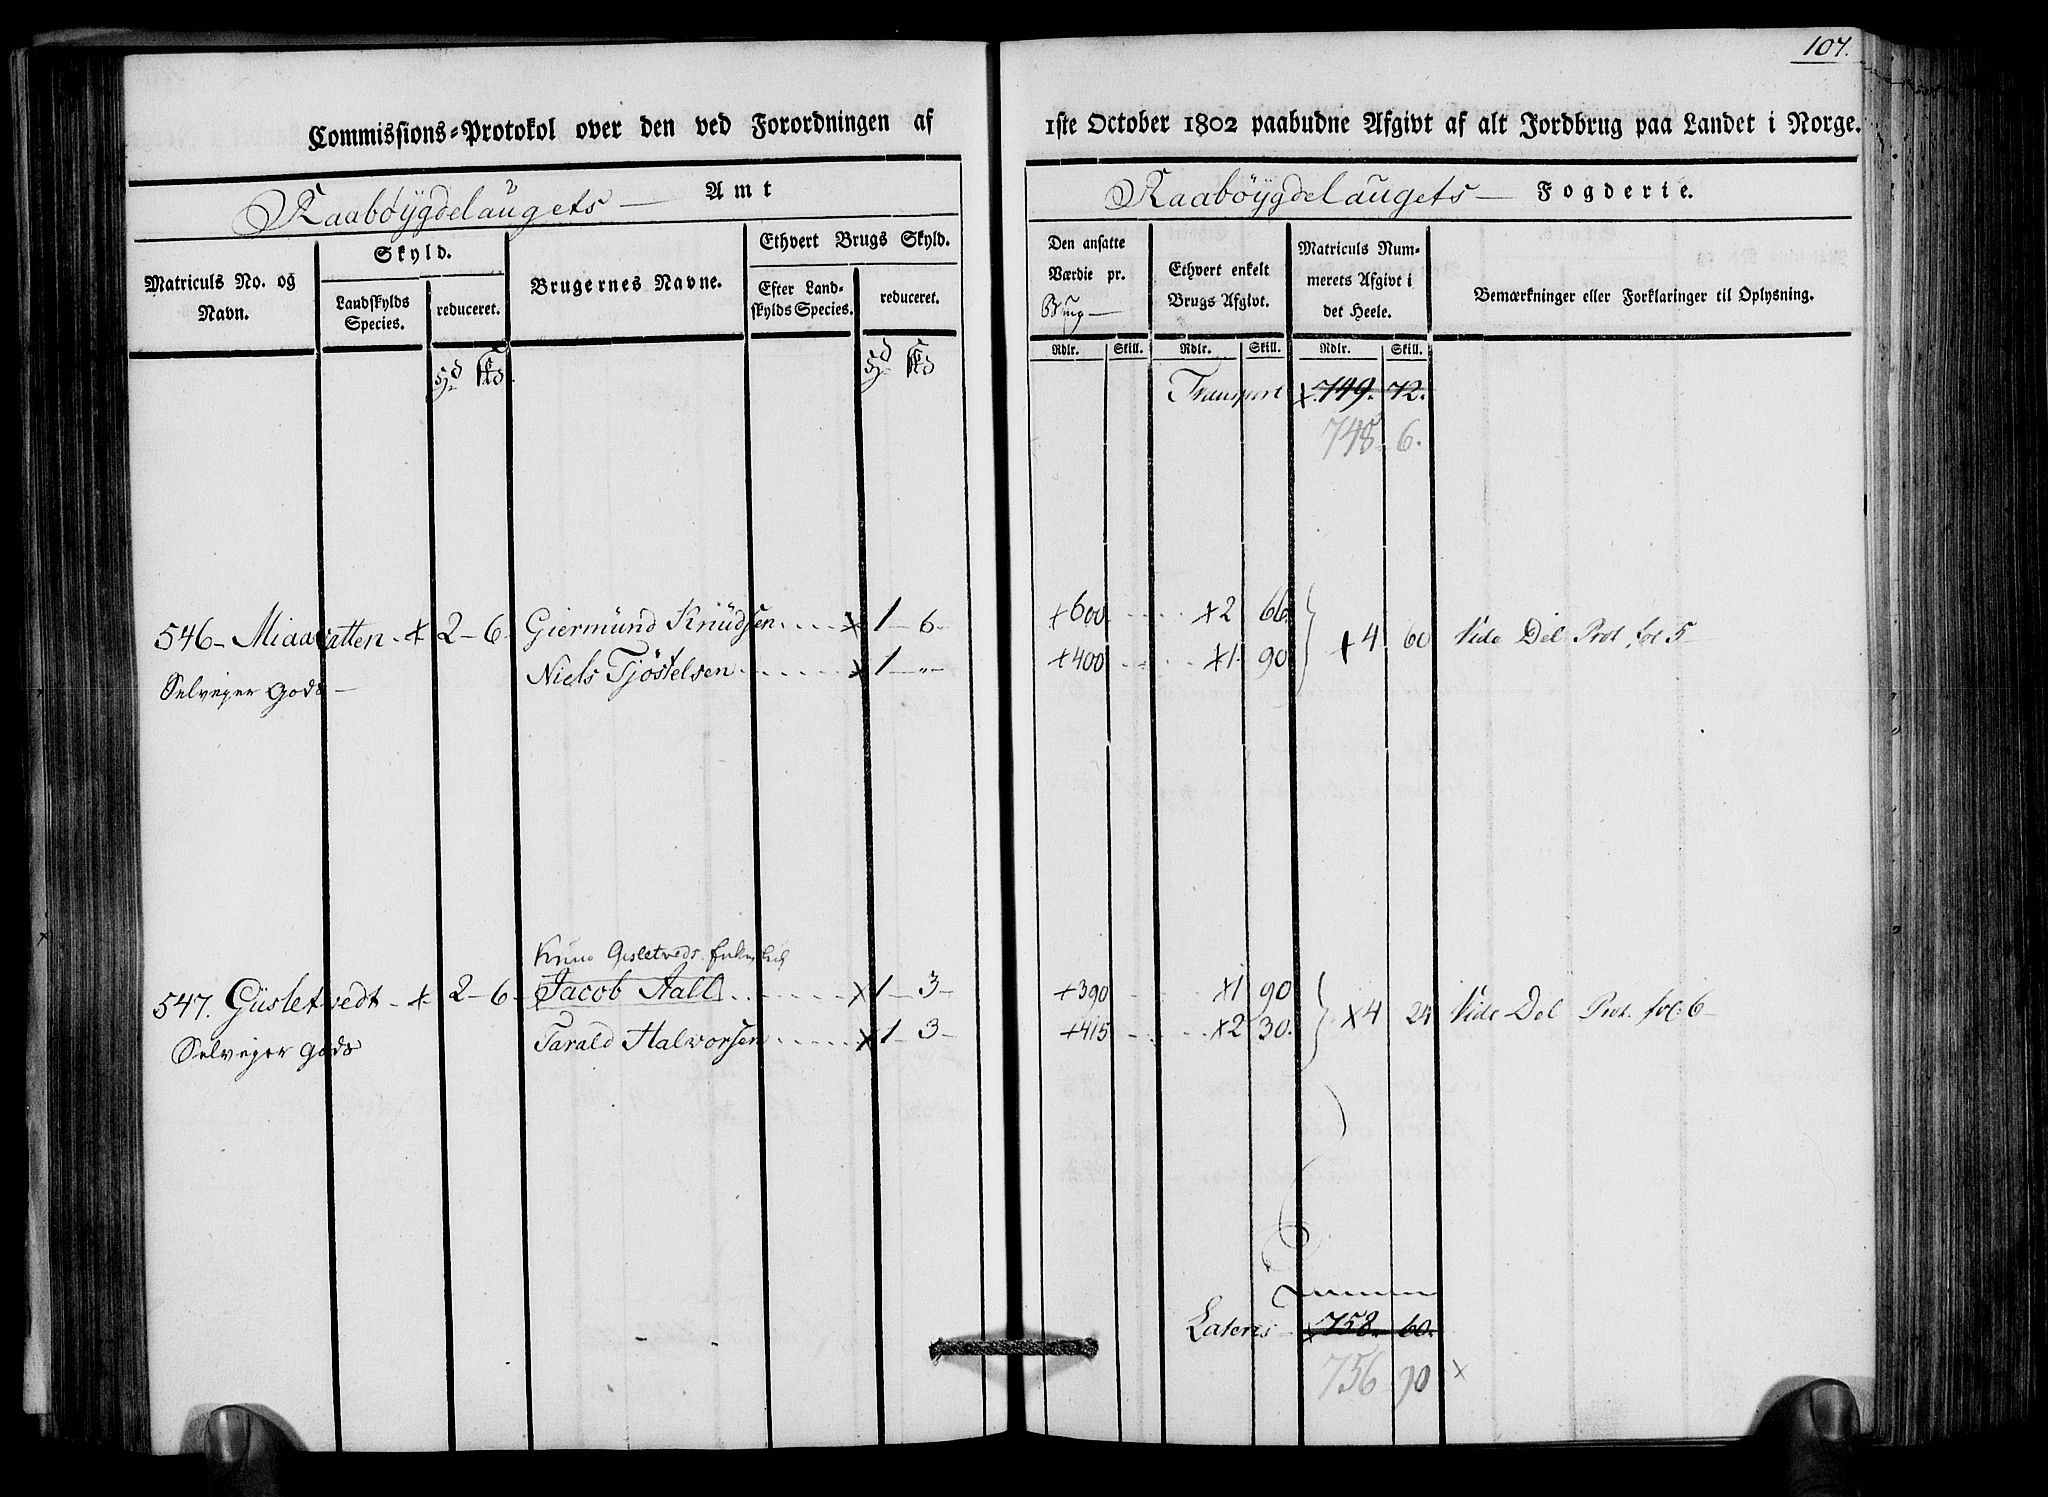 107.
Commissions-Protokol over den ved Forordningen af 1ste October 1802 paabudne Afgivt af alt Jordbrug paa Landet i Norge.
Raabøygdelaugets — Amt
Raabøygdelaugets — Fogderie.
Matriculs No. og Navn.
Skyld.
Landskylds Species.
reduceret.
Brugernes Navne.
Ethvert Brugs Skyld.
Efter Landskylds Species.
reduceret.
Den ansatte Værdie pr. Brug —
Ethvert enkelt Brugs Afgivt.
Matriculs Nummerets Afgivt i det Heele.
Bemærkninger eller Forklaringer til Oplysning.
Rdlr. Skill. Rdlr. Skill. Rdlr. Skill.
Transport x 749. 72.
748. 6.
546 - Miaavatten - x 2 - 6 - Giermund Knudsen .... x 1 - 6 - +600 .... x2 66. + 4 60 Vide Del Prot. fol 5
Selveyer Gods — Niels Tjøstelsen .... x 1 - " - +400 .... x1 90
Knud Gisletveds
547. Gusletvedt - x 2 - 6 - Jacob Aall .... x 1 - 3 - +390 .... x1 90 x4 24 Vide Del Prot. fol: 6 -
Selveyer Gods Tarald Halvorsen .... x 1 - 3 - +415 .... x2 30.
Summa
Lateris - x 758. 60.
756 90 x